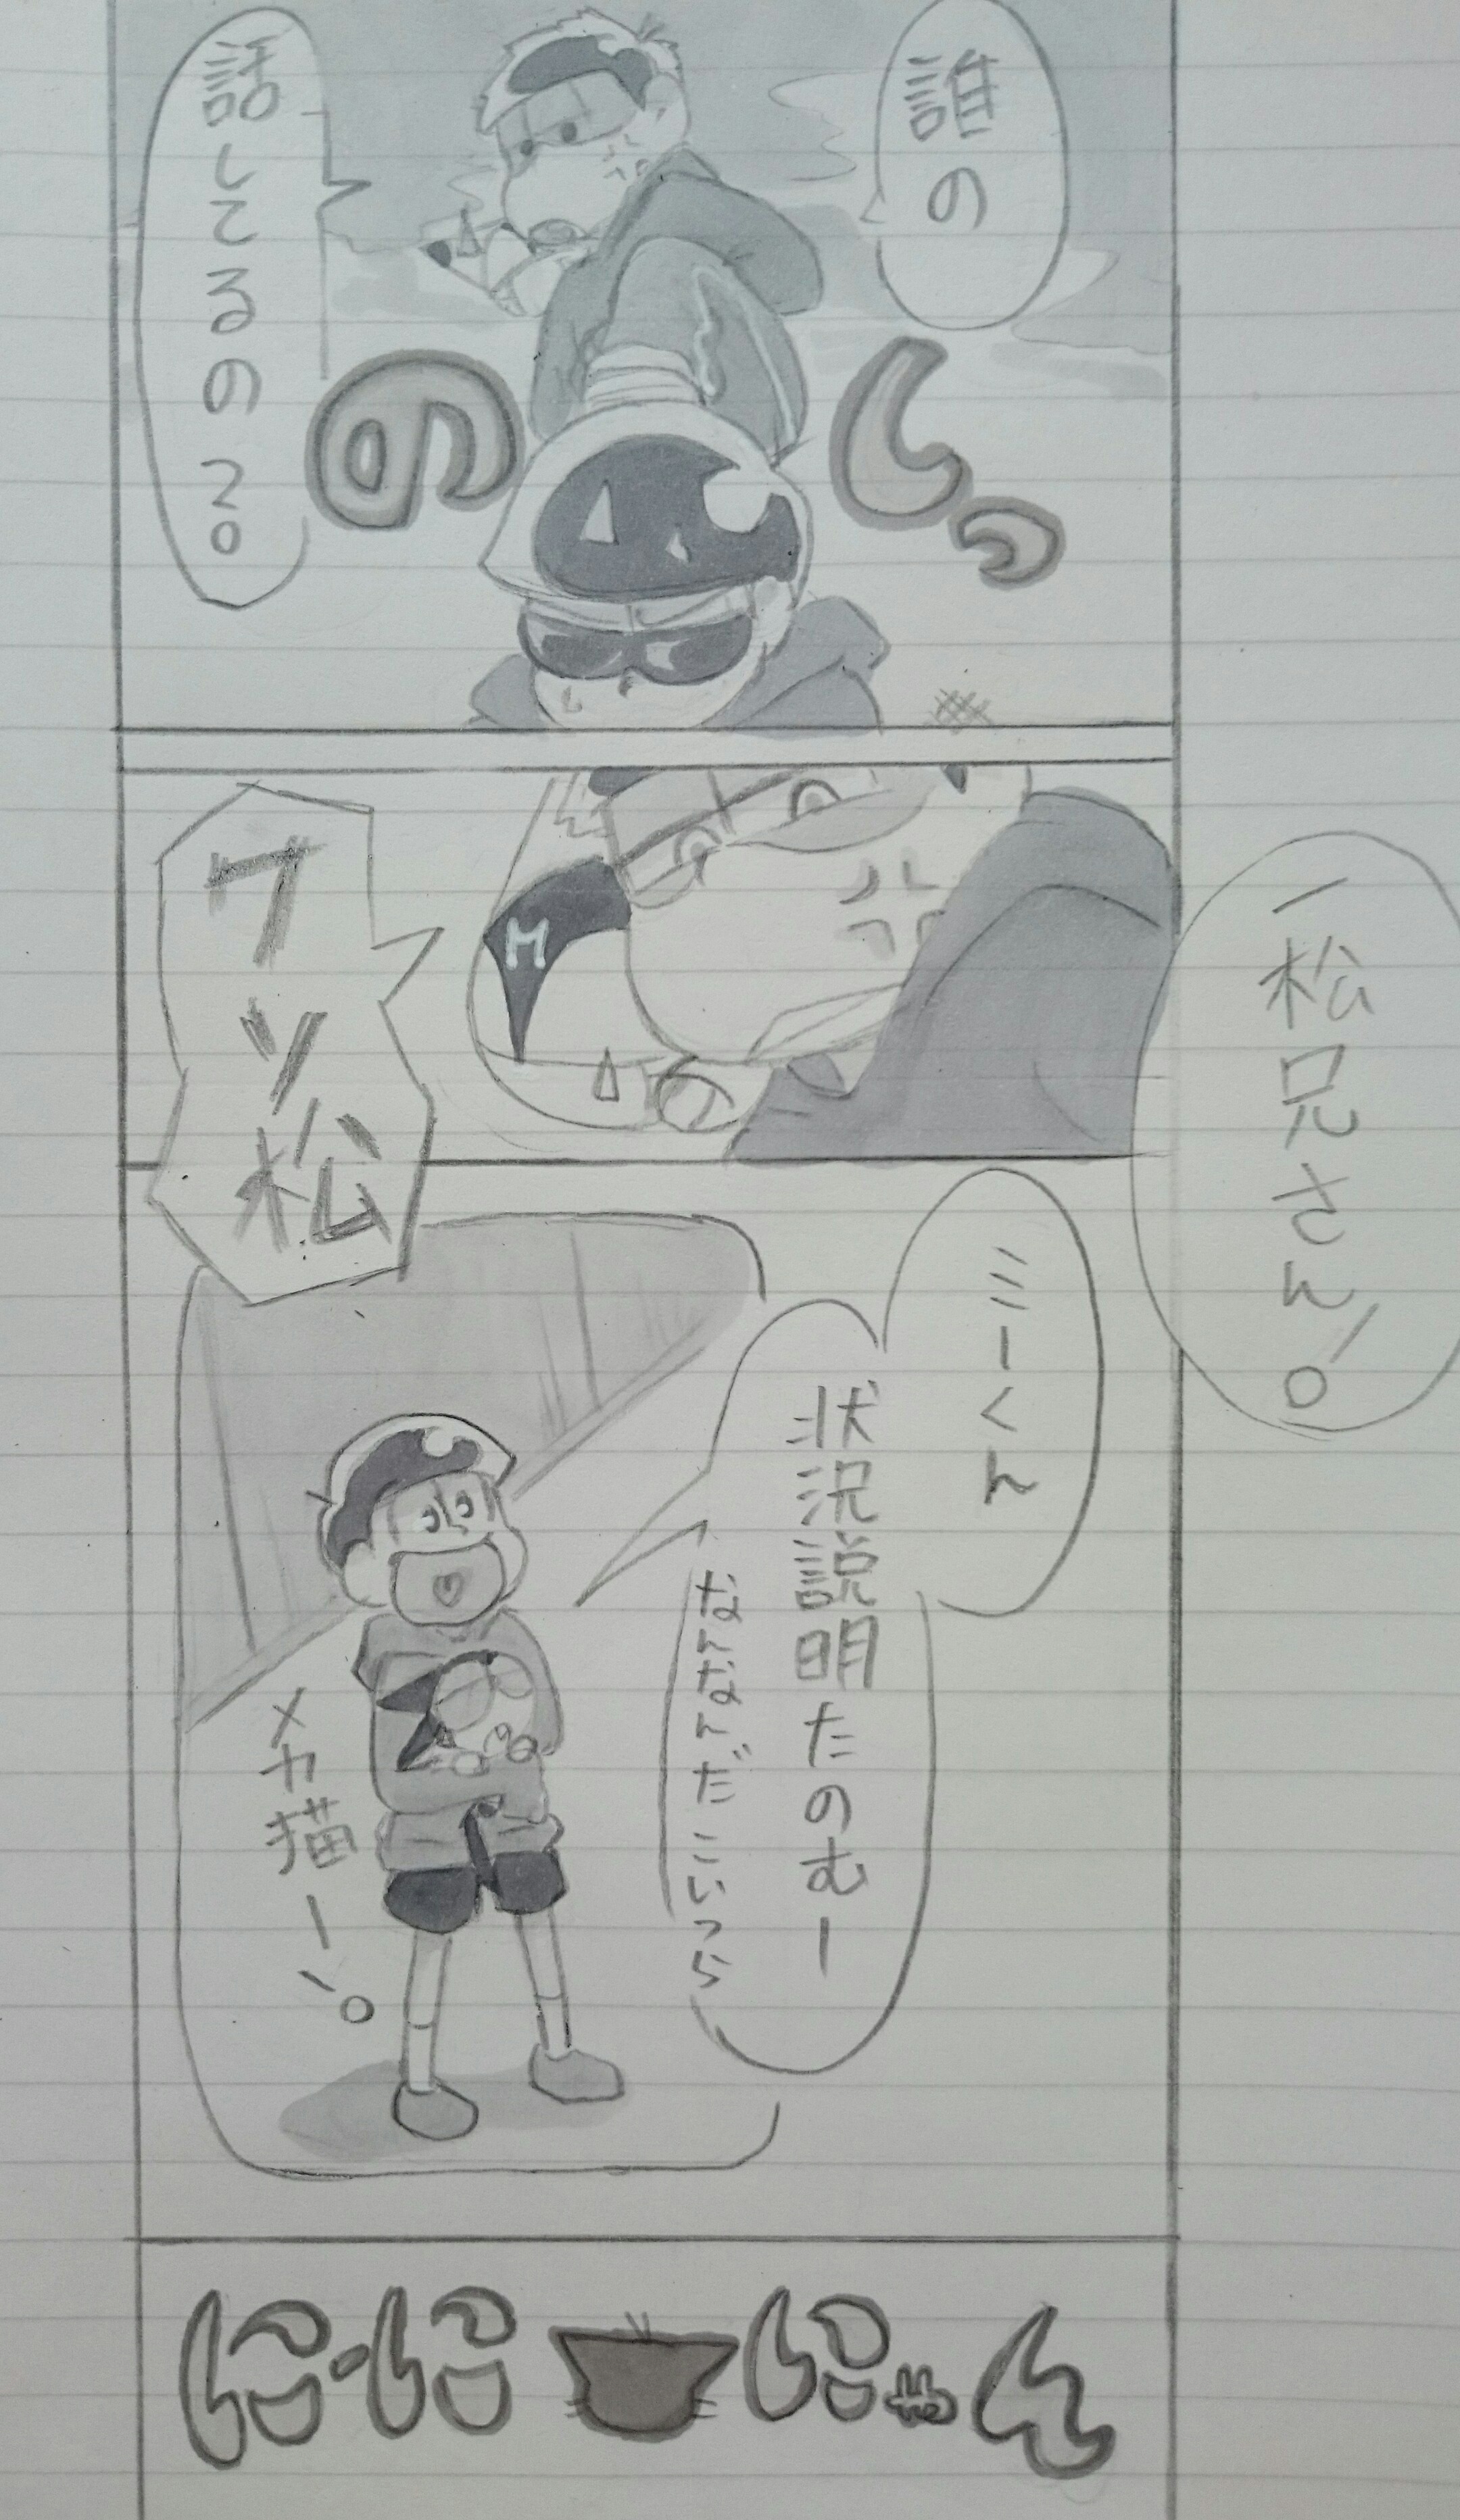 誰の
しっ
の
話してるの?
一松兄さん!
クソ松
ミーくん
状況説明たのむー
なになになになだこいつら
メカ猫ー!
にーにーにゃん